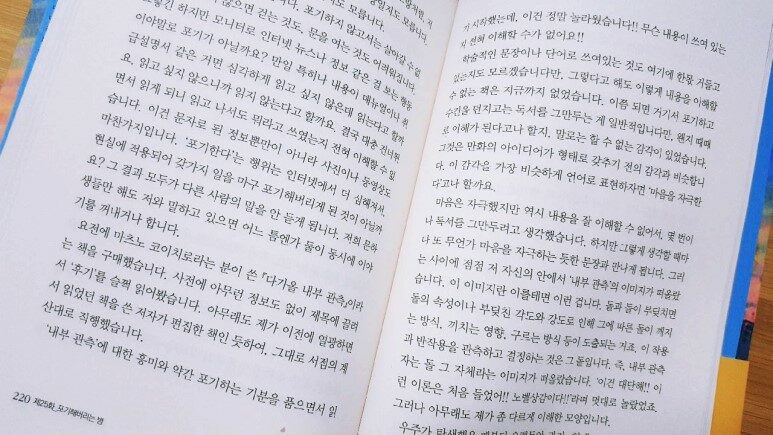 지 않으면 걷는 것도, 문을 여는 것도 어려워집니다.
렇긴 하지만 모니터로 인터넷 뉴스나 정보 같은 걸 보는 행동
이야말로 포기가 아닐까요? 만일 특히나 내용이 매뉴얼이나 취
급설명서 같은 거면 심각하게 읽고 싶지 않은데 읽는다고 할까
요. 읽고 싶지 않으니까 읽지 않는다고 할까요. 결국 대충 건너뛰
면서 읽게 되니 읽고 나서도 뭐라고 쓰였는지 전혀 이해할 수 없
습니다. 이건 문자로 된 정보뿐만이 아니라 사진이나 동영상도
마찬가지입니다. '포기한다'는 행위는 인터넷에서 더 심해져서,
현실에 적용되어 갖가지 일을 마구 포기해버리게 된 것이 아닐까
요? 그 결과 모두가 다른 사람의 말을 안 듣게 됩니다. 저희 문하
생들만 해도 저와 말하고 있으면 어느 틈엔가 둘이 동시에 이야
기를 꺼내거나 합니다.
요전에 마츠노 코이치로라는 분이 쓴 『다가올 내부 관측』이라
는 책을 구매했습니다. 사전에 아무런 정보도 없이 제목에 끌려
서 '후기'를 슬쩍 읽어봤습니다. 아무래도 제가 이전에 열광하면
서 읽었던 책을 쓴 저자가 편집한 책인 듯하여, 그대로 서점의 계
산대로 직행했습니다.
'내부 관측'에 대한 흥미와 약간 포기하는 기분을 품으면서 읽
220 제25화_포기해버리는 병
기 시작했는데, 이건 정말 놀라웠습니다!! 무슨 내용이 쓰여 있는
지 전혀 이해할 수가 없어요!!
학술적인 문장이나 단어로 쓰여있는 것도 여기에 한몫 거들고
있는지도 모르겠습니다만, 그렇다고 해도 이렇게 내용을 이해할
수 없는 책은 지금까지 없었습니다. 이쯤 되면 거기서 포기하고
수건을 던지고는 독서를 그만두는 게 일반적입니다만, 왠지 때때
로 이해가 된다고나 할지, 말로는 할 수 없는 감각이 있었습니다.
그것은 만화의 아이디어가 형태로 갖추기 전의 감각과 비슷합니
다. 이 감각을 가장 비슷하게 언어로 표현하자면 '마음을 자극한
다'고나 할까요.
마음은 자극했지만 역시 내용을 잘 이해할 수 없어서, 몇 번이
나 독서를 그만두려고 생각했습니다. 하지만 그렇게 생각할 때마
다 또 무언가 마음을 자극하는 듯한 문장과 만나게 됩니다. 그러
는 사이에 점점 저 자신의 안에서 '내부 관측'의 이미지가 떠올랐
습니다. 이 이미지란 이를테면 이런 겁니다. 돌과 돌이 부딪치면
돌의 속성이나 부딪힌 각도와 강도로 인해 그에 따른 돌이 깨지
는 방식, 끼치는 영향, 구르는 방식 등이 도출되는 거죠. 이 작용
과 반작용을 관측하고 결정하는 것은 그 돌입니다. 즉, 내부 관측
자는 돌 그 자체라는 이미지가 떠올랐습니다. '이건 대단해!! 이
런 이론은 처음 들었어!! 노벨상감이다!!'라며 멋대로 놀랐었죠.
그러나 아무래도 제가 좀 다르게 이해한 모양입니다.